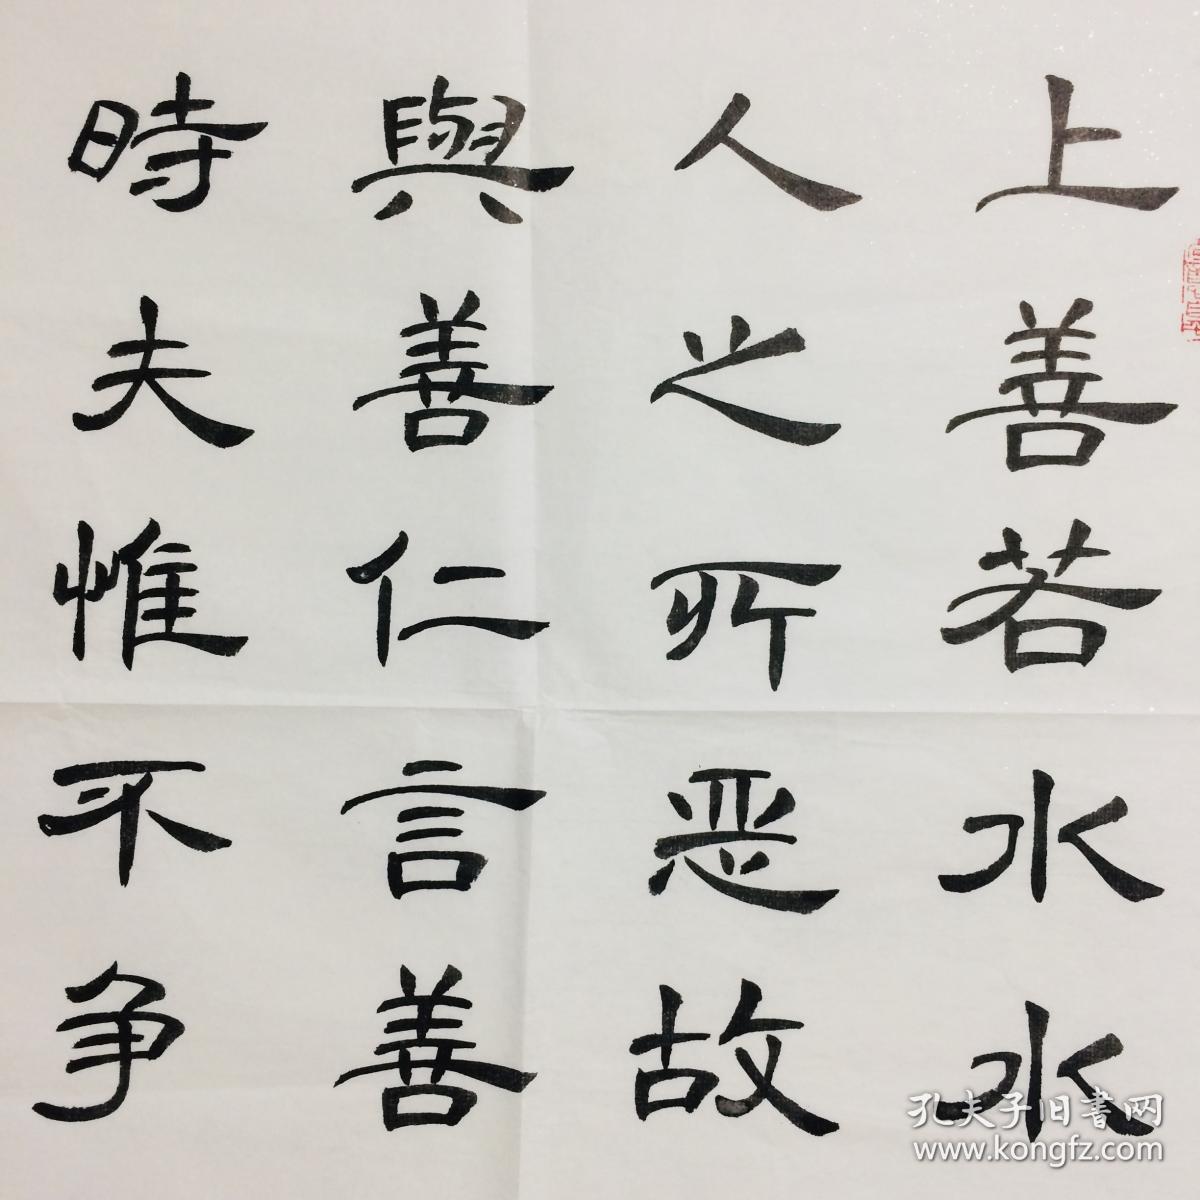 上善若水水
人之所恶故
與善仁言善
時夫惟不争
孔夫子旧书网
www.kongfz.com